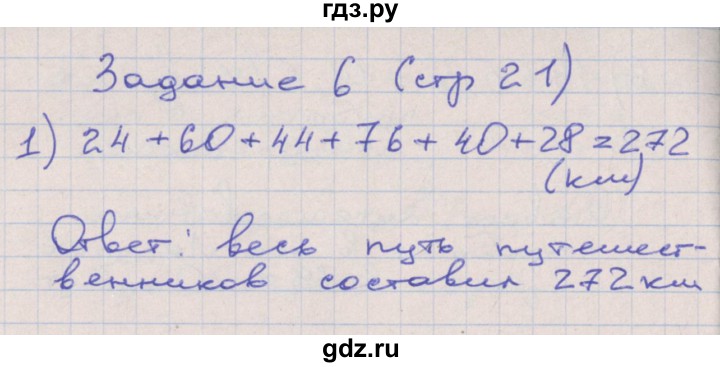 гдз.ру
Задание 6 (стр 21)
1) 24 + 60 + 44 + 76 + 40 + 28 = 272
(км)
Ответ: весь путь путешест-
венников составил 272 км
gdz.ru